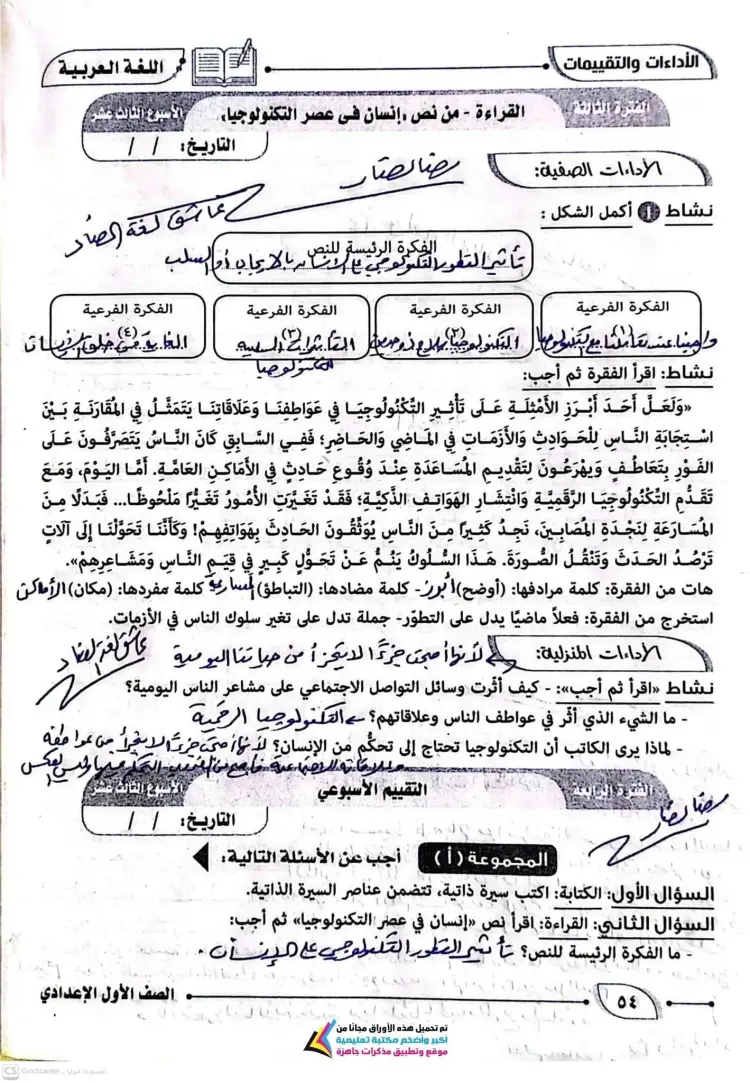 الأداءات والتقييمات
اللغة العربية
الفقرة الثالثة
القراءة - من نص «إنسان فى عصر التكنولوجيا»
الأسبوع الثالث عشر
التاريخ: / /
الأداءات الصفية:
رضا لصتار
عاشق لغة الضاد
نشاط ١ أكمل الشكل :
الفكرة الرئيسة للنص
تأثير التطور التكنولوجي على الإنسان بالإيجاب أو السلب
الفكرة الفرعية (١)
الفكرة الفرعية (٢)
التكنولوجيا سلاح ذو حدين
الفكرة الفرعية (٣)
التأثيرات السلبية للتكنولوجيا
الفكرة الفرعية (٤)
نشاط: اقرأ الفقرة ثم أجب:
«وَلَعَلَّ أَحَدَ أَبْرَزِ الأَمْثِلَةِ عَلَى تَأْثِيرِ التِّكْنُولُوجِيَا فِي عَوَاطِفِنَا وَعَلَاقَاتِنَا يَتَمَثَّلُ فِي المُقَارَنَةِ بَيْنَ
اسْتِجَابَةِ النَّاسِ لِلْحَوَادِثِ وَالأَزَمَاتِ فِي المَاضِي وَالحَاضِرِ؛ فَفِي السَّابِقِ كَانَ النَّاسُ يَتَصَرَّفُونَ عَلَى
الفَوْرِ بِتَعَاطُفٍ وَيهْرَعُونَ لِتَقْدِيمِ المُسَاعَدَةِ عِنْدَ وُقُوعِ حَادِثٍ فِي الأَمَاكِنِ العَامَّةِ. أَمَّا اليَوْمَ، وَمَعَ
تَقَدُّمِ التِّكْنُولُوجِيَا الرَّقْمِيَّةِ وَانْتِشَارِ الهَوَاتِفِ الذَّكِيَّةِ؛ فَقَدْ تَغَيَّرَتِ الأُمُورُ تَغَيُّرًا مَلْحُوظًا... فَبَدَلًا مِنَ
المُسَارَعَةِ لِنَجْدَةِ المُصَابِينَ، نَجِدُ كَثِيرًا مِنَ النَّاسِ يُوَثِّقُونَ الحَادِثَ بِهَوَاتِفِهِمْ! وَكَأَنَّنَا تَحَوَّلْنَا إِلَى آلَاتٍ
تَرْصُدُ الحَدَثَ وَتَنْقُلُ الصُّورَةَ. هَذَا السُّلُوكُ يَنُمُّ عَنْ تَحَوُّلٍ كَبِيرٍ فِي قِيَمِ النَّاسِ وَمَشَاعِرِهِمْ».
هات من الفقرة: كلمة مرادفها: (أوضح) أبرز - كلمة مضادها: (التباطؤ) المسارعة كلمة مفردها: (مكان) الأماكن
استخرج من الفقرة: فعلاً ماضيًا يدل على التطوّر- جملة تدل على تغير سلوك الناس في الأزمات.
الأداءات المنزلية:
لأنها أصبحت جزءًا لا يتجزأ من حياتنا اليومية
عاشق لغة الضاد
نشاط «اقرأ ثم أجب»: - كيف أثرت وسائل التواصل الاجتماعي على مشاعر الناس اليومية؟
- ما الشيء الذي أثر في عواطف الناس وعلاقاتهم؟ التكنولوجيا الرقمية
- لماذا يرى الكاتب أن التكنولوجيا تحتاج إلى تحكّم من الإنسان؟ لأنها أصبحت جزءًا لا يتجزأ من عواطفنا
الفقرة الرابعة
التقييم الأسبوعي
الأسبوع الثالث عشر
التاريخ: / /
المجموعة (أ) أجب عن الأسئلة التالية:
السؤال الأول: الكتابة: اكتب سيرة ذاتية، تتضمن عناصر السيرة الذاتية.
السؤال الثاني: القراءة: اقرأ نص «إنسان في عصر التكنولوجيا» ثم أجب:
- ما الفكرة الرئيسة للنص؟ تأثير التطور التكنولوجي على الإنسان.
٥٤
الصف الأول الإعدادي
تم تحميل هذه الأوراق مجانا من
اكبر واضخم مكتبة تعليمية
موقع وتطبيق مذكرات جاهزة
CS CamScanner